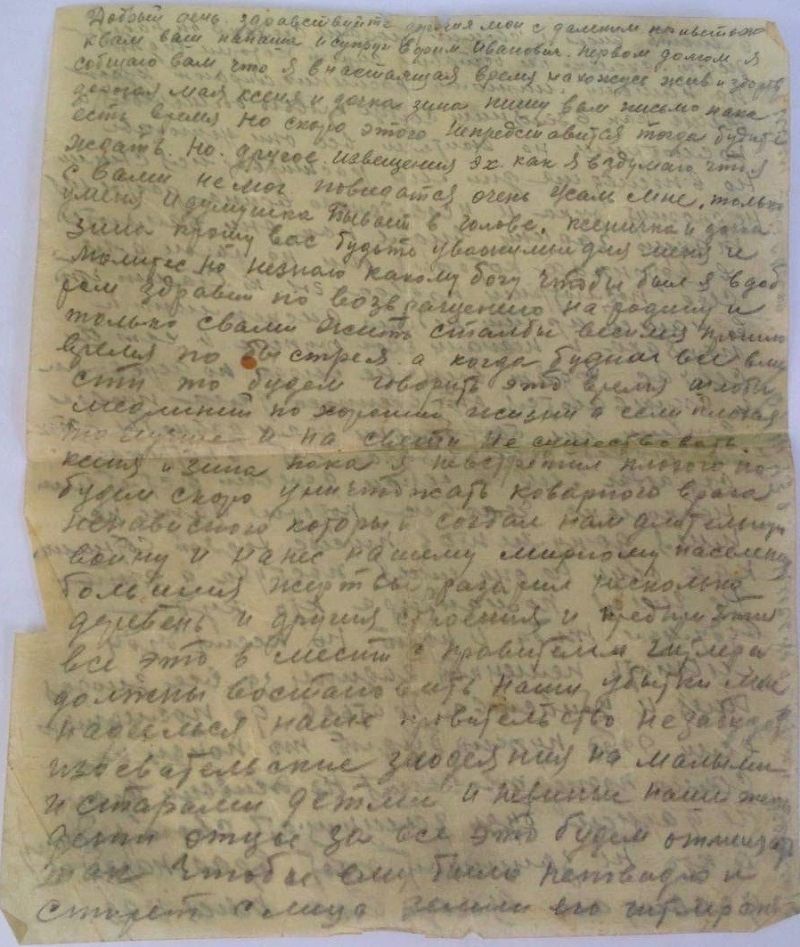 Добрый день. здравствуйте дорогия мои с далеким приветом
к вам ваш папаша и супруг Ефрим Иванович. первом долгом я
собщаю вам, что я в настаящая время нахожусе жив и здоров
дорогая мая ксеня и дочка зина пишу вам письмо пака
есть время но скоро этого непредставится тогда будите
ждать но другое извещения эх как я вздумаю что я
с вами не мог повидатся очень мне, только
уменя и думушка бывает в голове. ксеничка и дочка
зина прошу вас будьте уважимы для меня и
молитес но незнаю какому богу чтобы был я в доб
ром здравии по возвращению на родину и
только свами жить стал бы весилея прошло
время по быстрея. а когда будим все вме
сти то будем говорить это время шло бы
медлиней по хорошей жизни а если плохая
то лучше и на свети не сишествовать.
ксеня и зина пока я невстретил плохого но
будем скоро уничтожать коварного врага
ненависного которы создал нам длительную
войну и нанес нашему мирному населению
большия жертвы разарил нисколько
деревень и другия строения и предприятия
все это в мести с правителем гитлера
должны востановить наши убытки мы
надеимся наше правительство незабудет
издевательские злодеяния на малыми
и старами детми и невиные наши жены
дети отцы за все это будем отмщать
так чтобы ему было неповадно и
стереть с лица земли его гитлера